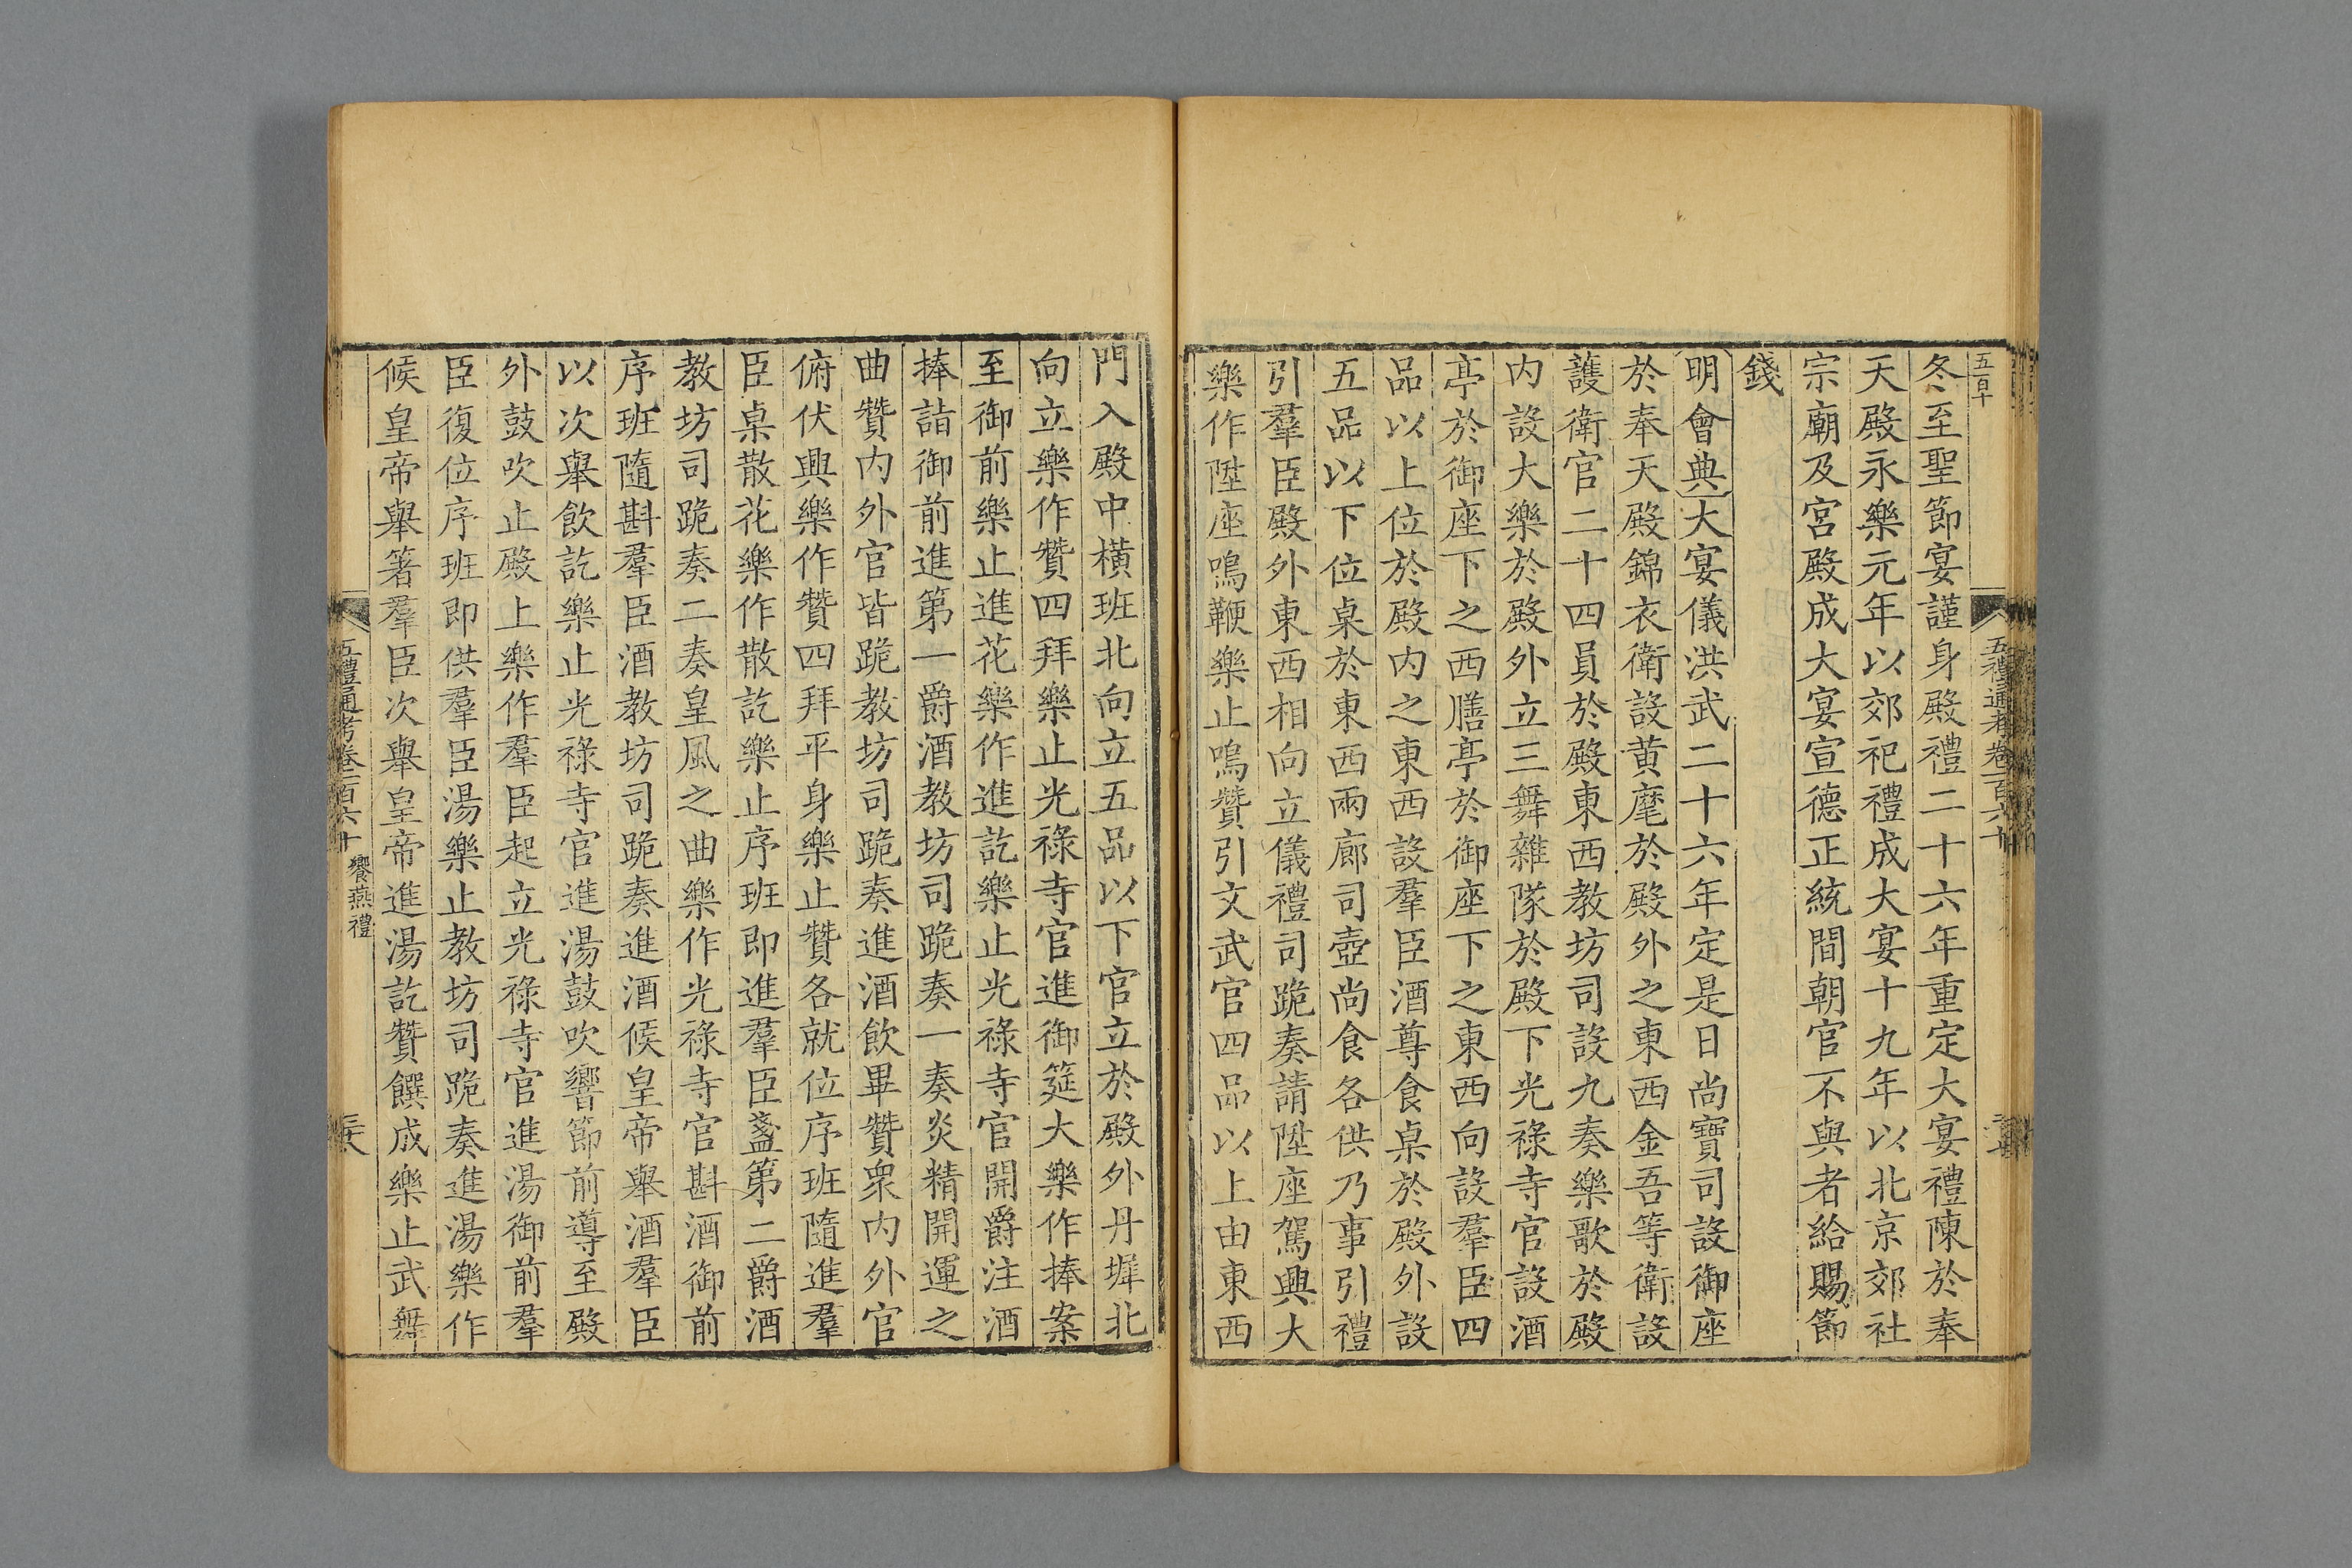 五百十
五禮通考卷一百六十
冬至聖節宴謹身殿禮二十六年重定大宴禮陳於奉
天殿永樂元年以郊祀禮成大宴十九年以北京郊社
宗廟及宮殿成大宴宣德正統間朝官不與者給賜節
錢
明會典大宴儀洪武二十六年定是日尚寶司設御座
於奉天殿錦衣衛設黄麾於殿外之東西金吾等衛設
護衛官二十四員於殿東西教坊司設九奏樂歌於殿
内設大樂於殿外立三舞雜隊於殿下光祿寺官設酒
亭於御座下之西膳亭於御座下之東西向設羣臣四
品以上位於殿内之東西設羣臣酒尊食桌於殿外設
五品以下位桌於東西兩廊司壺尚食各供乃事引禮
引羣臣殿外東西相向立儀禮司跪奏請陞座駕興大
樂作陞座鳴鞭樂止鳴贊引文武官四品以上由東西
門入殿中橫班北向立五品以下官立於殿外丹墀北
向立樂作贊四拜樂止光祿寺官進御筵大樂作捧案
至御前樂止進花樂作進訖樂止光祿寺官開爵注酒
捧詣御前進第一爵酒教坊司跪奏一奏炎精開運之
曲贊内外官皆跪教坊司跪奏進酒飲畢贊衆内外官
俯伏興樂作贊四拜平身樂止贊各就位序班隨進羣
臣桌散花樂作散訖樂止序班即進羣臣盞第二爵酒
教坊司跪奏二奏皇風之曲樂作光祿寺官斟酒御前
序班隨斟羣臣酒教坊司跪奏進酒候皇帝舉酒羣臣
以次舉飲訖樂止光祿寺官進湯鼓吹響節前導至殿
外鼓吹止殿上樂作羣臣起立光祿寺官進湯御前羣
臣復位序班即供羣臣湯樂止教坊司跪奏進湯樂作
候皇帝舉箸羣臣次舉皇帝進湯訖贊饌成樂止武舞
五禮通考卷一百六十 饗燕禮